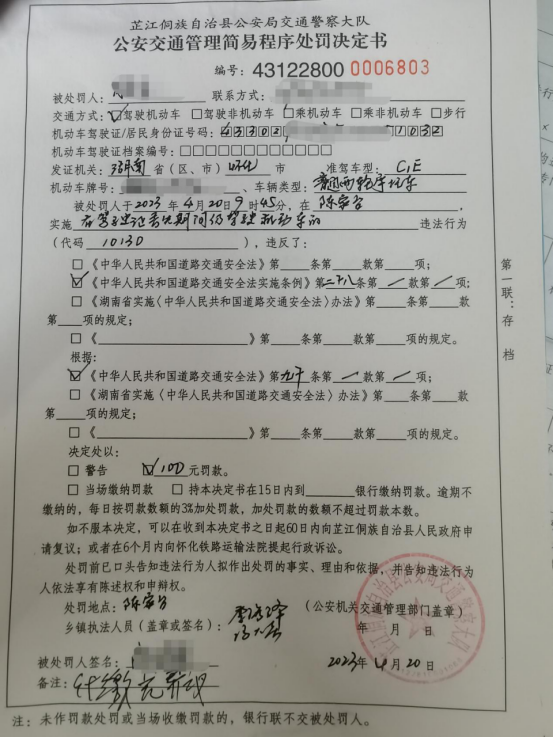 芷江侗族自治县公安局交通警察大队
公安交通管理简易程序处罚决定书
编号：43122800 0006803
被处罚人： 联系方式：
交通方式：☑驾驶机动车 □驾驶非机动车 □乘机动车 □乘非机动车 □步行
机动车驾驶证/居民身份证号码：43302 1032
机动车驾驶证档案编号：□□□□□□□□□□□□
发证机关：湖南省（区、市）怀化市 准驾车型：C1E
机动车牌号： 、车辆类型：普通两轮摩托车
被处罚人于2023年4月20日9时45分，在陈家谷
实施在驾驶证丢失期间仍驾驶机动车的违法行为
（代码 10130 ），违反了：
□《中华人民共和国道路交通安全法》第 条第 款第 项；
☑《中华人民共和国道路交通安全法实施条例》第二十八条第／款第／项；
□《湖南省实施〈中华人民共和国道路交通安全法〉办法》第 条第 款
第 项的规定；
□《 》第 条第 款第 项的规定。
根据：
☑《中华人民共和国道路交通安全法》第九十条第／款第／项；
□《湖南省实施〈中华人民共和国道路交通安全法〉办法》第 条第 款
第 项的规定；
□《 》第 条第 款第 项的规定。
决定处以：
□ 警告 ☑100元罚款。
□ 当场缴纳罚款 □ 持本决定书在15日内到 银行缴纳罚款。逾期不
缴纳的，每日按罚款数额的3%加处罚款，加处罚款的数额不超过罚款本数。
如不服本决定，可以在收到本决定书之日起60日内向芷江侗族自治县人民政府申
请复议；或者在6个月内向怀化铁路运输法院提起行政诉讼。
处罚前已口头告知违法行为人拟作出处罚的事实、理由和依据，并告知违法行为
人依法享有陈述权和申辩权。
处罚地点：陈家谷 （公安机关交通管理部门盖章）
乡镇执法人员（盖章或签名）： 年 月 日
被处罚人签名： 2023年4月20日
备注：
注：未作罚款处罚或当场收缴罚款的，银行联不交被处罚人。
第一联：存档